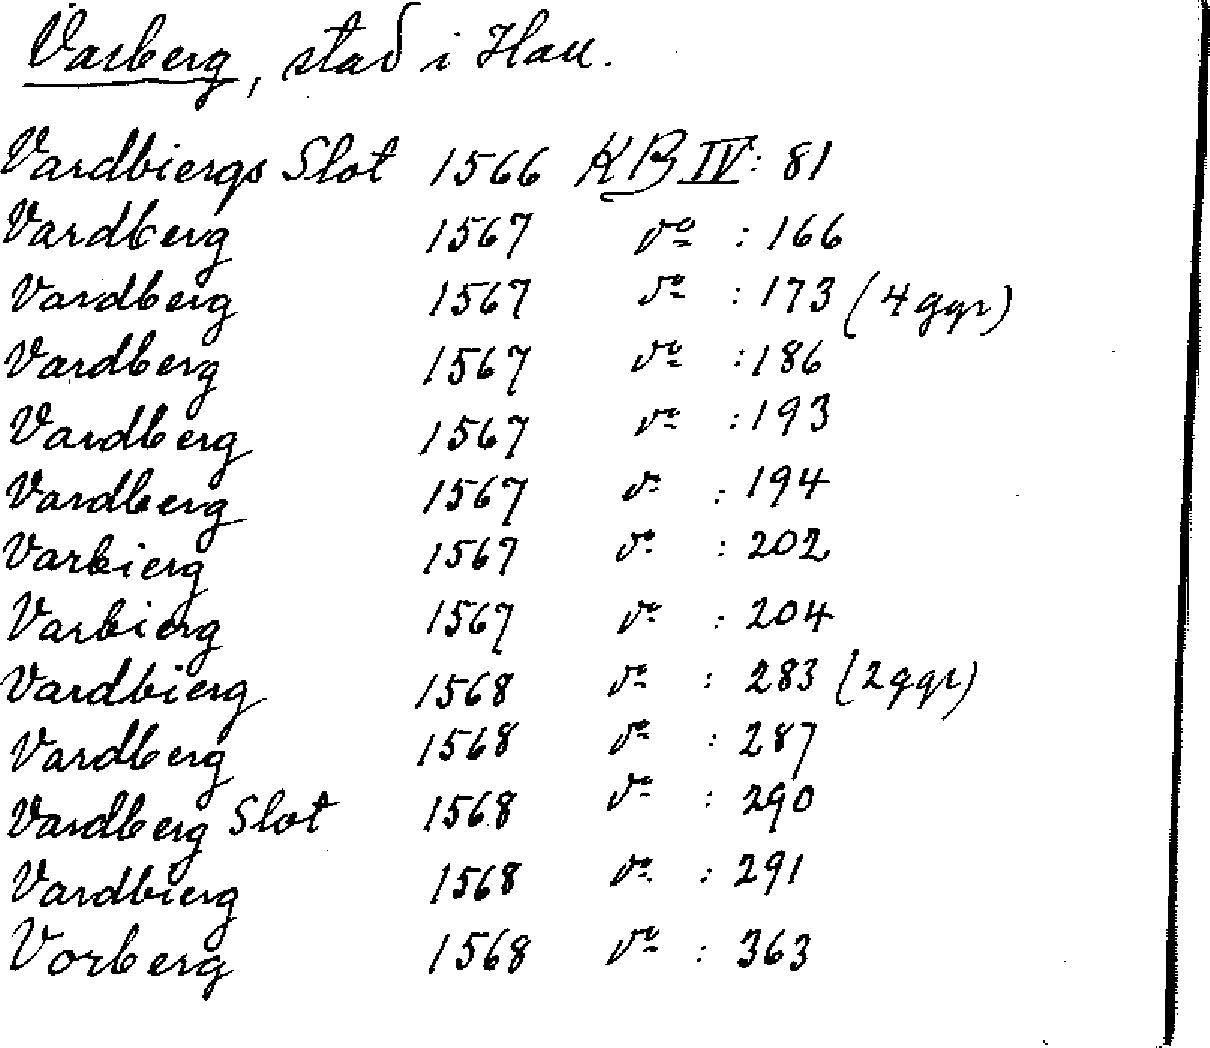 Varberg, stad i Hall.
Vardbiergs Slot 1566 KB IV: 81
Vardberg 1567 do : 166
Vardberg 1567 do : 173 (4 ggr)
Vardberg 1567 do : 186
Vardberg 1567 do : 193
Vardberg 1567 do : 194
Varbierg 1567 do : 202
Varbierg 1567 do : 204
Vardbierg 1568 do : 283 (2 ggr)
Vardberg 1568 do : 287
Vardberg Slot 1568 do : 290
Vardbierg 1568 do : 291
Vorberg 1568 do : 363